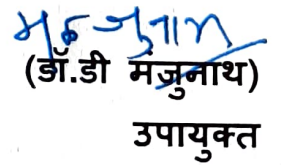 मंजुनाथ
(डॉ.डी मंजुनाथ)
उपायुक्त